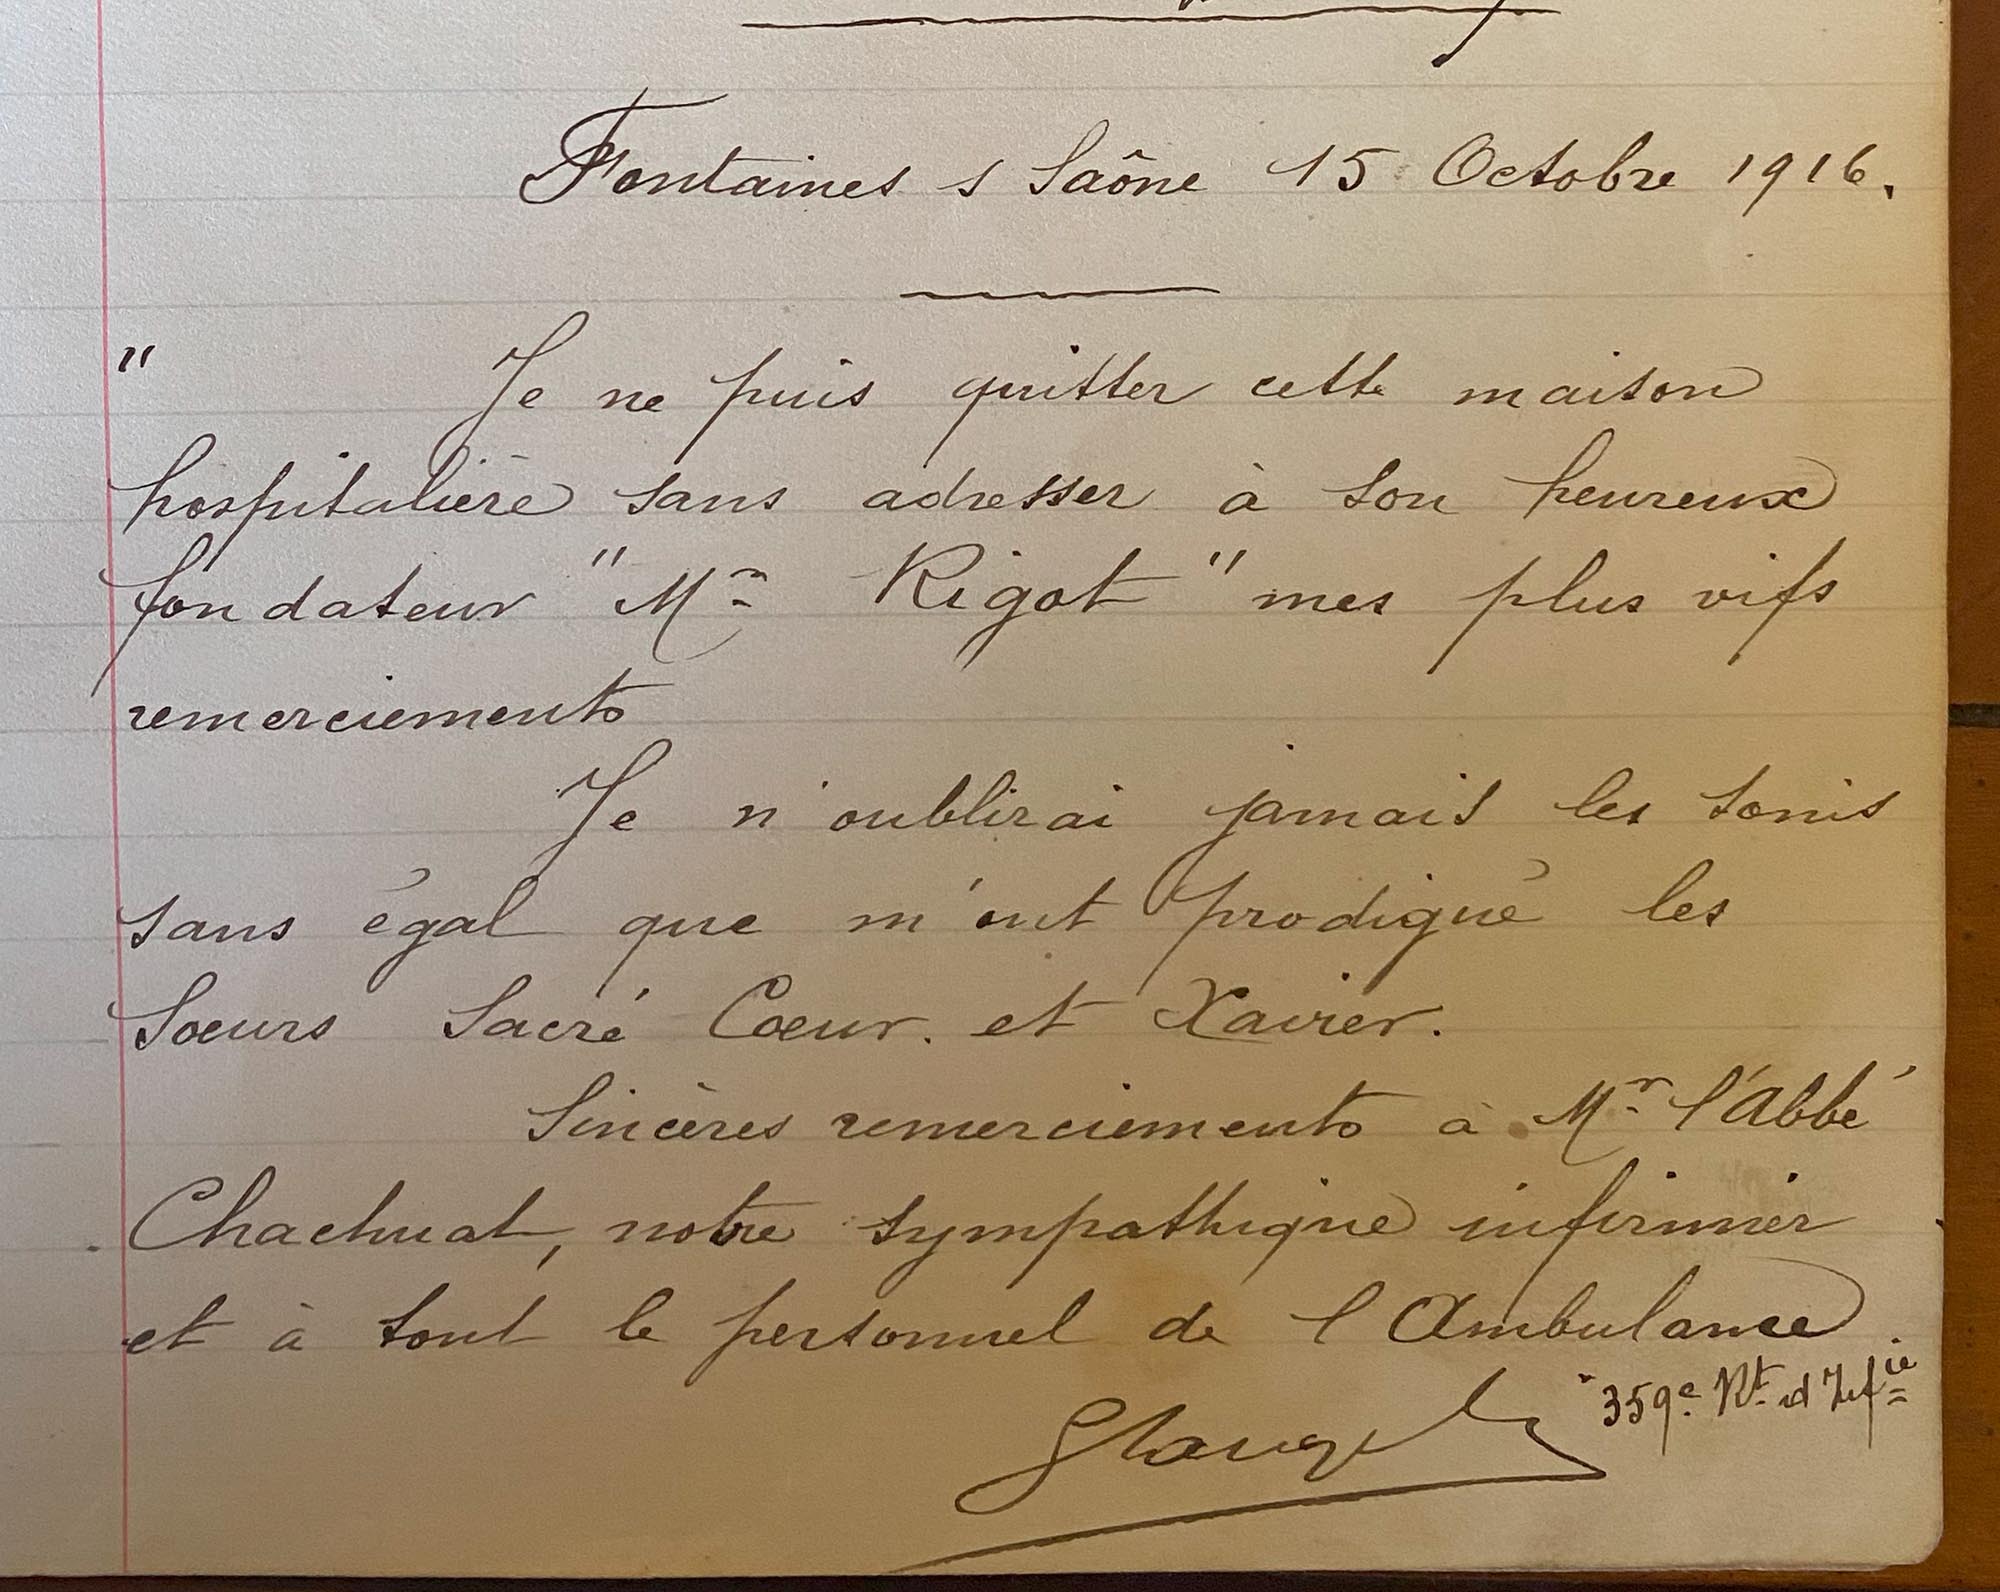 Fontaines s Saône 15 Octobre 1916.
" Je ne puis quitter cette maison
hospitalière sans adresser à son heureux
fondateur "Mr Rigot" mes plus vifs
remerciements
Je n'oublirai jamais les soins
sans égal que m'ont prodigué les
Soeurs Sacré Coeur. et Xavier.
Sincères remerciements à Mr l'Abbé
Chachuat, notre sympathique infirmier
et à tout le personnel de l'Ambulance.
359e Rt d'Infie